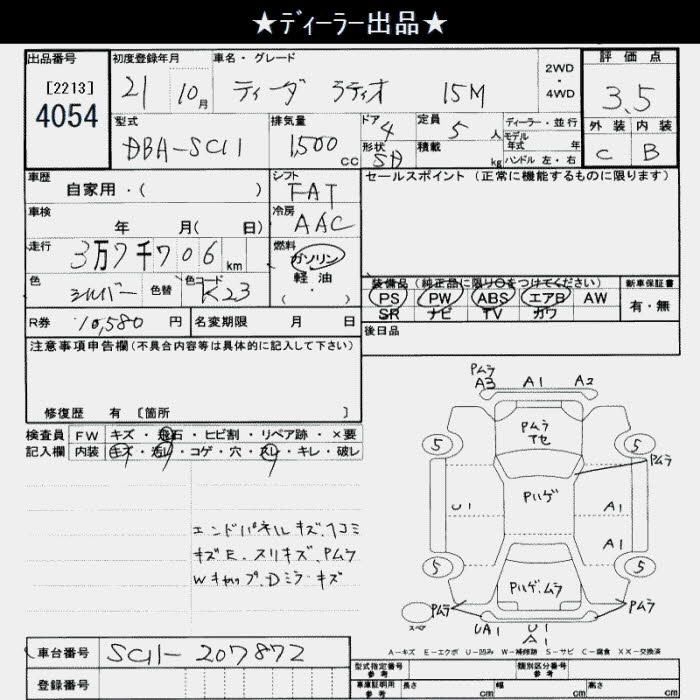 ★ディーラー出品★
出品番号
[2213]
4054
初度登録年月
21 10月
車名・グレード
ティーダ ラティオ 15M
2WD
・
4WD
評価点
3.5
外装 内装
C B
型式
DBA-SC11
排気量
1,500 cc
ドア 4
形状 SD
定員 5 人
積載 kg
ディーラー・並行
モデル
年式 年
ハンドル 左・右
車歴
自家用・( )
シフト
FAT
セールスポイント(正常に機能するものに限ります)
車検
年 月( 日)
冷房
AAC
走行
3万7千706km
燃料
ガソリン
軽油
( ・ )
色
シルバー
色替
色コード
K23
装備品(純正品に限り〇をつけてください)
PS PW ABS エアB AW
SR ナビ TV カワ
新車保証書
有・無
R券 10,580 円
名変期限 月 日
後日品
注意事項申告欄(不具合内容等は具体的に記入して下さい)
修復歴 有 [箇所 ]
検査員
記入欄
FW キズ・飛石・ヒビ割・リペア跡・×要
内装 キズ・汚レ・コゲ・穴・スレ・キレ・破レ
エンドパネルキズ.ヘコミ
キズE.スリキズ.Pムラ
Wキャップ.Dミラーキズ
Pムラ
A3 A1 A2
Pムラ
5 5
Pムラ
Pハゲ
U1 A1
A1
5 5
Pハゲ.ムラ
Pムラ Pムラ
スペア
UA1 U1
A1
A-キズ E-エクボ U-凹み W-補修跡 S-サビ C-腐食 XX-交換済
車台番号 SC11-207872
登録番号
型式指定番号
参考
類別区分番号
参考
車庫証明用
参考
長さ cm
幅 cm
高さ cm